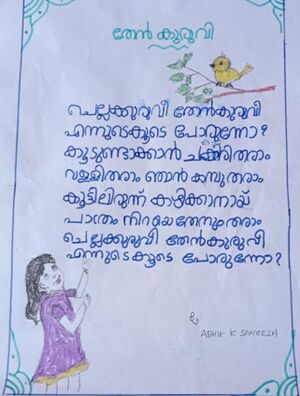 തേൻ കുരുവി
ചെല്ലക്കുരുവീ തേൻകുരുവീ
എന്നുടെകൂടെ പോരുന്നോ?
കൂടുണ്ടാക്കാൻ ചകിരിതരാം
വള്ളിതരാം ഞാൻ കമ്പുതരാം
കൂട്ടിലിരുന്ന് കഴിക്കാനായ്
പാത്രം നിറയെതേനുതരാം
ചെല്ലക്കുരുവീ തേൻകുരുവീ
എന്നുടെകൂടെ പോരുന്നോ?
By
ABHIK K